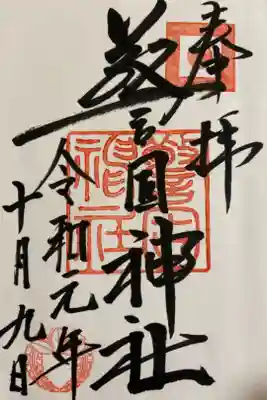 奉拝
警固神社
令和元年
十月九日